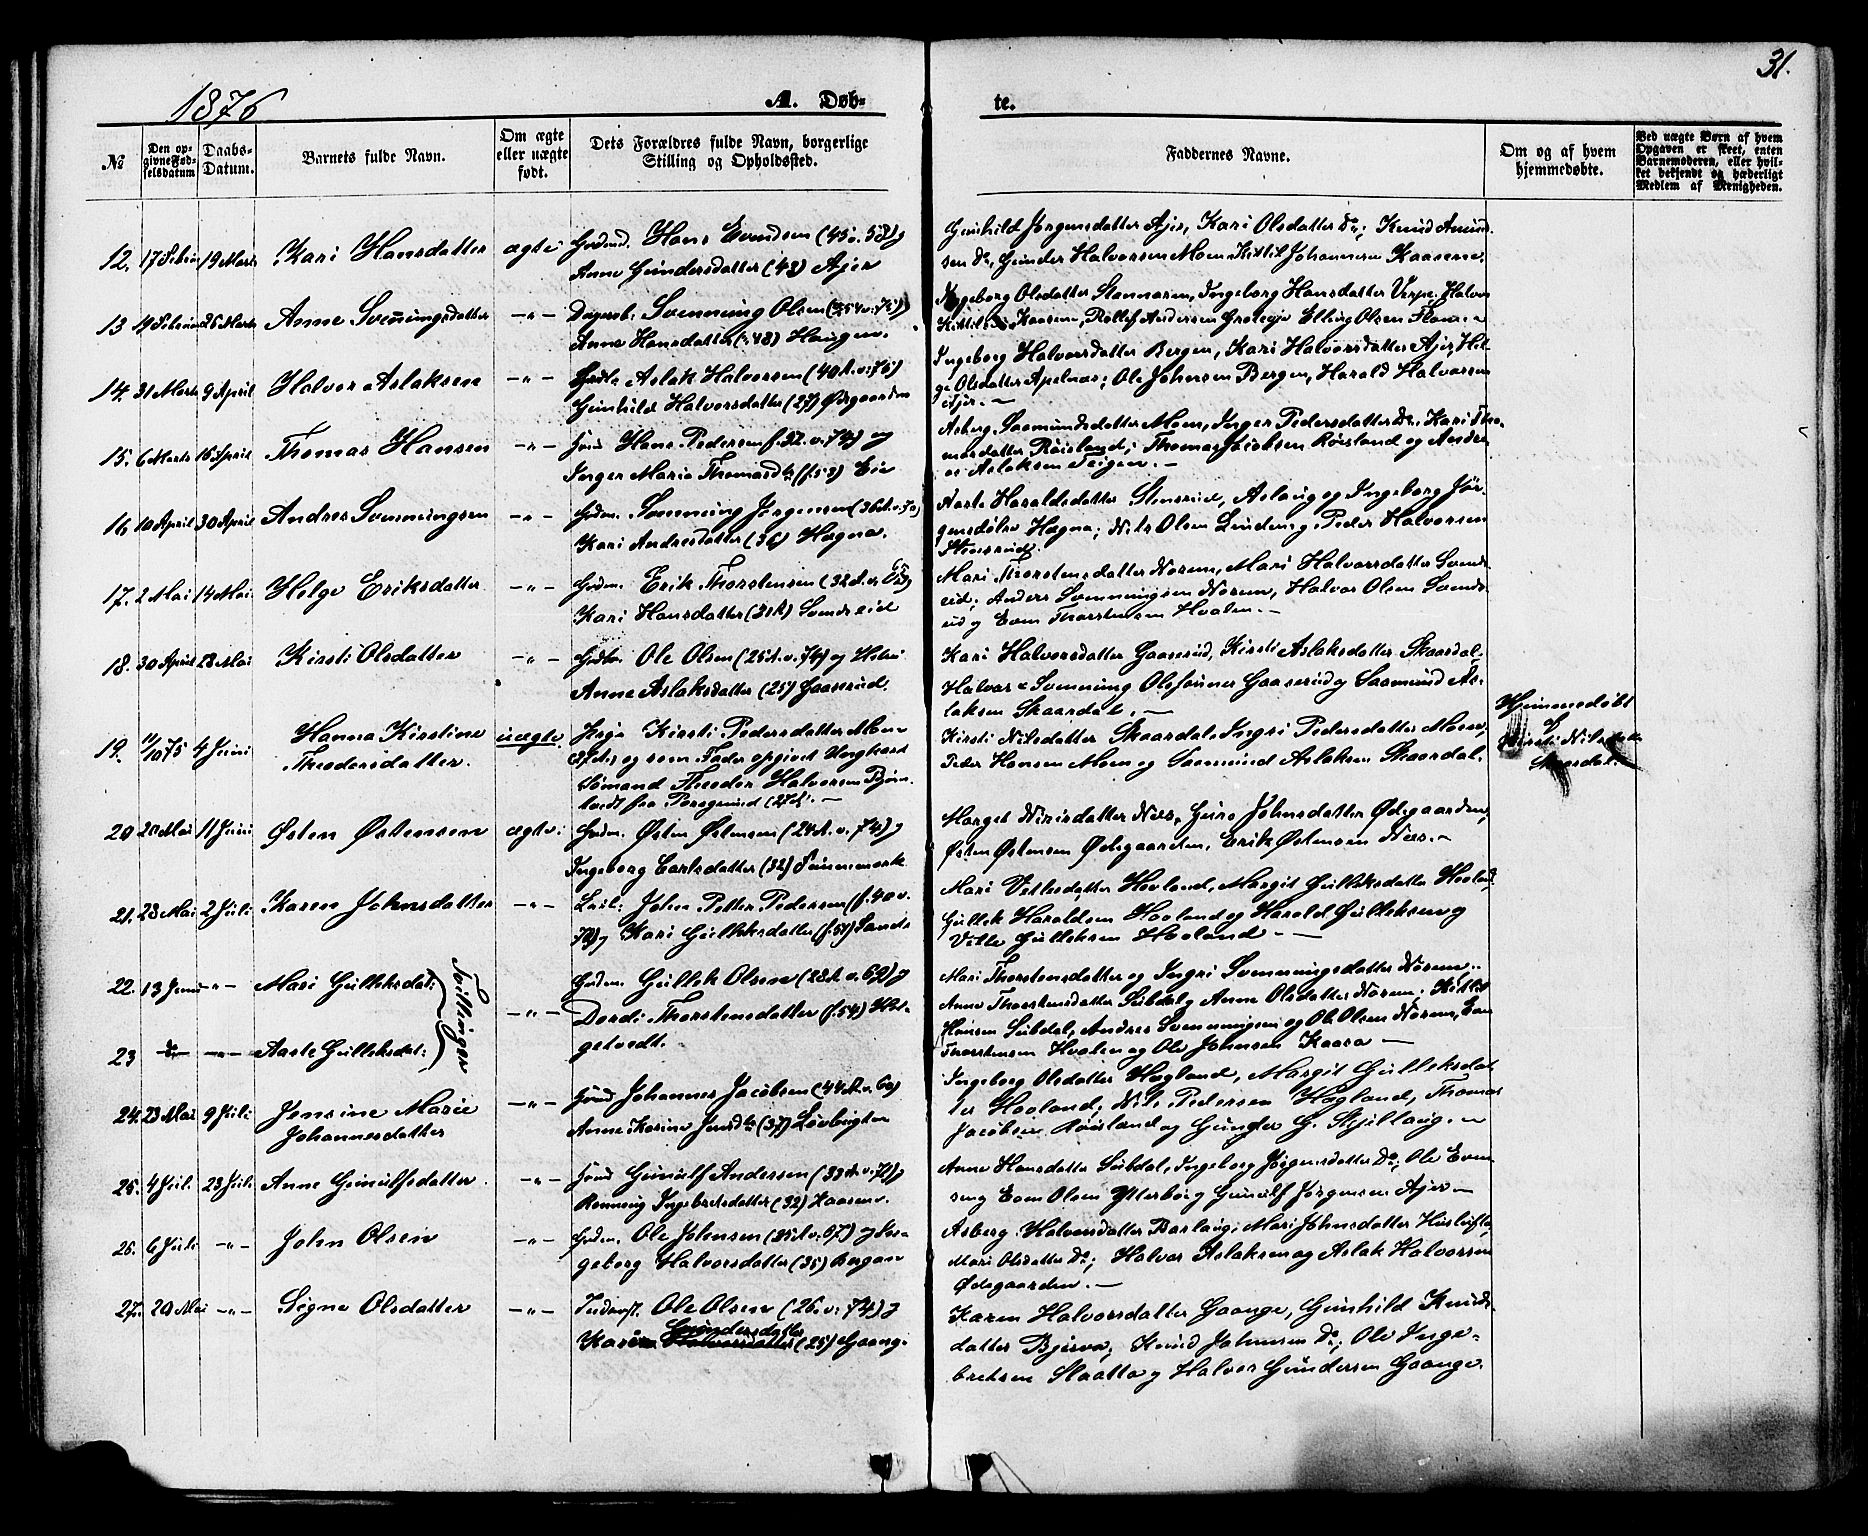 31.
1876
A. Døb-
te.
№
Den op-
givne Fød-
selsdatum
Daabs-
Datum.
Barnets fulde Navn.
Om ægte
eller uægte
født.
Dets Forældres fulde Navn, borgerlige
Stilling og Opholdssted.
Faddernes Navne.
Om og af hvem
hjemmedøbte.
Ved uægte Børn af hvem
Opgaven er skeet, enten
Barnemoderen, eller hvil-
ket bekjendt og hæderligt
Medlem af Menigheden.
12. 17 Febr 19 Marts Kari Hansdatter ægte Grdmd. Hans Evendsen (45 v. 58) og
Anne Gundersdatter (48) Ajer
Gunhild Jørgensdatter Ajer, Kari Olsdatter Do; Knud Amund-
sen Do, Gunder Halvorsen Moen Kittil Johannesen Kaasene.
13 19 Febr 26 Marts Anne Svenningsdatter -"- Svenning Olsen
Anne Hansdatter (48) Haugen.
Ingeborg Olsdatter Ingeborg Hansdatter Verpe. Halvor
Kaasene, Rollef Andersen Elling Olsen
14. 31 Marts 9 April Halvor Aslaksen -"- Aslak Halvorsen (40 A. v. 75)
Gunhild Halvorsdatter (27) Øigaarden
Ingeborg Halvorsdatter Bergen, Kari Halvorsdatter Ajer, Hel-
ge Olsdatter Apelnæs; Ole Johnsen Bergen, Harald Halvorsen
Ajer. —
15. 6 Marts 16 April Thomas Hansen -"- Hans Pedersen f. 52. v. 74) og
Inger Maria Thomasdtr (f. 53) Eie
Asberg Saamundsdatter Moen, Inger Pedersdatter Do, Kari Tho-
masdatter Røisland; Thomas Jacobsen Røisland og Andre-
as Aslaksen Teigen. —
16 10 April 30 April Andres Svenningsen -"- Grdm. Svenning Jørgensen (36 A. v. 70)
Kari Andresdatter (36) Hagna.
Aaste Haraldsdatter Stensrud, Aslaug og Ingeborg Jør-
gensdøtre Hagna; Nils Olsen Peder Halvorsen
Stensrud.
17. 2 Mai 14 Mai Helge Eriksdatter -"- Grdm. Erik Thorstensen (32 A. v.
Kari Hansdatter
Mari Thorstensdatter Noren, Mari Halvorsdatter Svends-
eid; Anders Svenningsen Noren, Halvor Olsen Svends-
eid og Even Thorstensen Hvalen. —
18. 30 April 28 Mai Kirsti Olsdatter -"- Ole Olsen (25 A. v. 74) og
Anne Aslaksdatter (25) Gaaserud.
Kari Halvorsdatter Gaaserud, Kirsti Aslaksdatter Skaardal,
Halvor & Svenning Olesønner Gaaserud og Saamund As-
laksen Skaardal. —
19. 11/10 75 4 Juni Hanna Kirstine
Theodorsdatter. uægte Pige Kirsti Pedersdatter Moen
og som Fader opgivet Ungkarl
Sømand Theodor Halvorsen Bjørn-
tvedt fra Porsgrund (27 A. —
Kirsti Nilsdatter Skaardal, Ingri Pedersdatter Moen,
Peder Hansen Moen og Saamund Aslaksen Skaardal.
Hjemmedøbt
af
Kirsti Nilsdatter
Skaardal.
20 20 Mai 11 Juni Østen Østensen ægte: Grdm. Østen Østensen (24 A. v. 74) og
Ingeborg Carlsdatter (32)
Margit Næs, Guro Johnsdatter Ødegaarden,
Østen Østensen Ødegaarden, Erik Østensen Næs. —
21. 28 Mai 2 Juli Karen Johnsdatter -"- John Petter Pedersen (f. 40 v.
72) og Kari Gulleksdatter (f. 51) Sande
Mari Vetlesdatter Hovland, Margit Gulleksdatter Hovland
Gullek Haraldsen Hovland og Harald Gulleksen og
Vetle Gulleksen Hovland. —
22. 13 Juni -"- Mari Gulleksdat: Grdm. Gullek Olsen (28 A. v. 69) og
Tvillinger
-"- Dordi Thorstensdatter (f. 54) Hel-
23 do -"- Aaste Gulleksdat: getvedt.
Mari Thorstensdatter og Ingri Svenningsdatter Noren,
Anne Thorstensdatter Subdal, Anne Olsdatter Noren; Kittil
Hansen Subdal, Andres Svenningsen og Ole Olsen Noren, Even
Thorstensen Hvalen og Ole Johnsen Kaasa —
24. 23 Mai 9 Juli Jensine Marie
Johannesdatter -"- Johannes Jacobsen (44 A. v. 60)
Anne Karine Jensdtr (37)
Ingeborg Olsdatter Hogland, Margit Gulleksdat-
ter Hovland; Nils Pedersen Hogland, Thomas
Jacobsen Røisland og Gunder G.
25. 4 Juli 23 Juli Anne Gunulfsdatter -"- Gunulf Andersen (33 A. v. 72) og
Rønnaug Ingebretsdatter (32) Kaasene.
Anne Hansdatter Subdal, Ingeborg Jørgensdatter Do; Ole Even-
sen, Even Olsen Ytterbørg Gunulf Jørgensen Ajer —
26. 6 Juli -"- John Olsen -"- Grdm. Ole Johnsen (35 A. v. 67) og In-
geborg Halvorsdatter (35) Bergan
Asberg Halvorsdatter Barlaug, Mari Johnsdatter
Mari Olsdatter Do; Halvor Aslaksen og Aslak Halvorsen
Ødegaarden. —
27. 20 Mai -"- Signe Olsdatter -"- Inderst. Ole Olsen (26. v. 74) og
Karen Gundersdatter Halvorsdatter (25) Gaange
Karen Halvorsdatter Gaange, Gunhild Knuds-
datter Bjerva; Knud Johnsen Do; Ole Inge-
bretsen Slaatta og Halvor Gundersen Gaange.